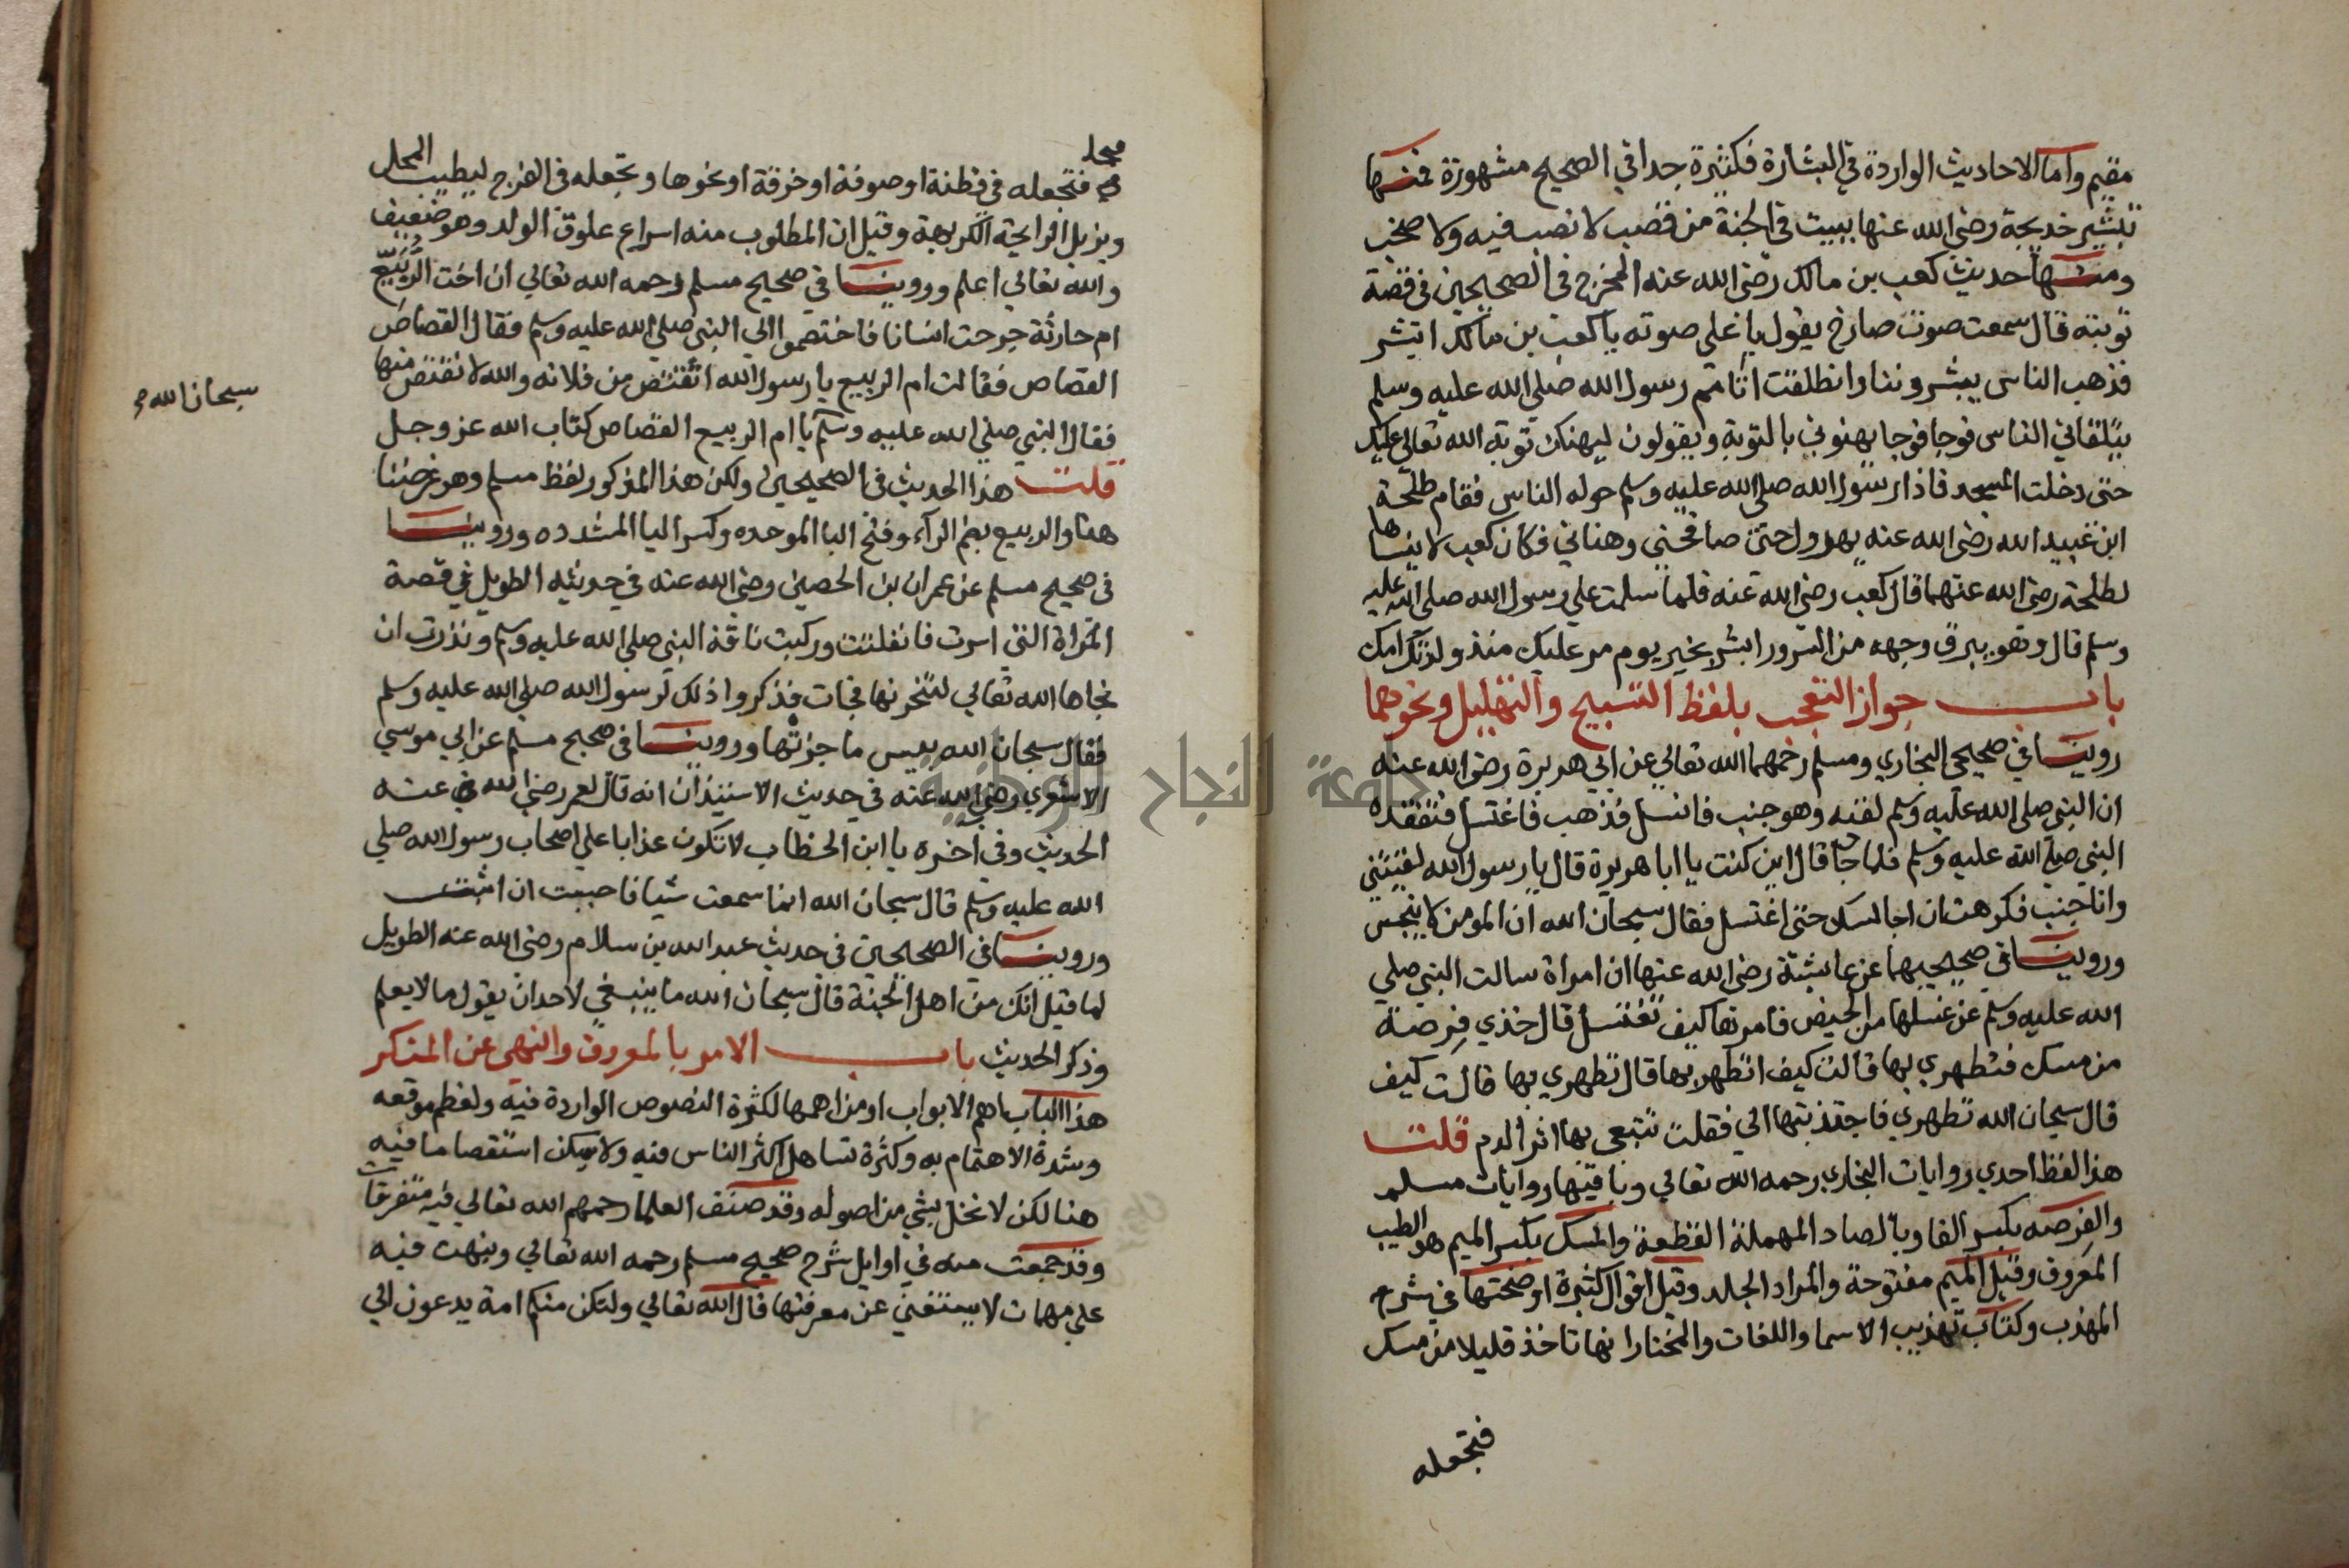 مقيم واما الاحاديث الواردة في البشارة فكثيرة جدا في الصحيح مشهورة فمنها
تبشير خديجة رضي الله عنها ببيت في الجنة من قصب لا نصب فيه ولا صخب
ومنها حديث كعب بن مالك رضي الله عنه المخرج في الصحيحين في قصة
توبته قال سمعت صوت صارخ يقول باعلي صوته يا كعب بن مالك ابشر
فذهب الناس يبشروننا وانطلقت اتأمم رسول الله صلي الله عليه وسلم
يتلقاني الناس فوجا فوجا يهنوني بالتوبة ويقولون ليهنك توبة الله تعالي عليك
حتى دخلت المسجد فاذا رسول الله صلي الله عليه وسلم حوله الناس فقام طلحة
ابن عبيد الله رضي الله عنه يهرول حتى صافحني وهناني فكان كعب لا ينساها
لطلحة رضي الله عنهما قال كعب رضي الله عنه فلما سلمت علي رسول الله صلي الله عليه
وسلم قال وهو يبرق وجهه من السرور ابشر بخير يوم مر عليك منذ ولدتك امك
باب جواز التعجب بلفظ التسبيح والتهليل ونحوهما
روينا في صحيحي البخاري ومسلم رحمهما الله تعالي عن ابي هريرة رضي الله عنه
ان النبي صلي الله عليه وسلم لقيه وهو جنب فانسل فذهب فاغتسل فتفقده
النبي صلي الله عليه وسلم فلما جا قال اين كنت يا ابا هريرة قال يا رسول الله لقيتني
وانا جنب فكرهت ان اجالسك حتى اغتسل فقال سبحان الله ان المومن لا ينجس
وروينا في صحيحيهما عن عايشة رضي الله عنها ان امراة سالت النبي صلي
الله عليه وسلم عن غسلها من الحيض فامرها كيف تغتسل قال خذي فرصة
من مسك فتطهري بها قالت كيف اتطهر بها قال تطهري بها قالت كيف
قال سبحان الله تطهري فاجتذبتها الي فقلت تتبعي بها اثر الدم قلت
هذا لفظ احدي روايات البخاري رحمه الله تعالي وباقيها روايات مسلم
والفرصه بكسر الفا وبالصاد المهملة القطعة والمسك بكسر الميم هو الطيب
المعروف وقيل الميم مفتوحة والمراد الجلد وقيل اقوال كثيرة اوضحتها في شرح
المهذب وكتاب تهذيب الاسما واللغات والمختار انها تاخذ قليلا من مسك
فتجعله
فتجعله في قطنة او صوفة او خرقة او نحوها وتجعله في الفرج ليطيب المحل
ويزيل الرايحة الكريهة وقيل ان المطلوب منه اسراع علوق الولد وهو ضعيف
والله تعالي اعلم وروينا في صحيح مسلم رحمه الله تعالي ان اخت الربيع
ام حارثة جرحت انسانا فاختصموا الي النبي صلي الله عليه وسلم فقال القصاص
القصاص فقالت ام الربيع يا رسول الله اتقتص من فلانه والله لا تقتص منها
فقال النبي صلي الله عليه وسلم يا ام الربيع القصاص كتاب الله عز وجل
سبحان الله
قلت هذا الحديث في الصحيحين ولكن هذا المذكور لفظ مسلم وهو غرضنا
هنا والربيع بضم الرآء وفتح البا الموحده وكسر اليا المشدده وروينا
في صحيح مسلم عن عمران بن الحصين رضي الله عنه في حديثه الطويل في قصة
المراة التي اسرت فانفلتت وركبت ناقة النبي صلي الله عليه وسلم ونذرت ان
نجاها الله تعالي لتنحرنها فجات فذكروا ذلك لرسول الله صلي الله عليه وسلم
فقال سبحان الله بيس ما جزتها وروينا في صحيح مسلم عن ابي موسي
الاشعري رضي الله عنه في حديث الاستيذان انه قال لعمر رضي الله عنه
الحديث وفي اخره يا ابن الخطاب لا تكون عذابا علي اصحاب رسول الله صلي
الله عليه وسلم قال سبحان الله انما سمعت شيا فاحببت ان اتثبت
وروينا في الصحيحين في حديث عبد الله بن سلام رضي الله عنه الطويل
لما قيل انك من اهل الجنة قال سبحان الله ما ينبغي لاحد ان يقول ما لا يعلم
وذكر الحديث باب الامر بالمعروف والنهي عن المنكر
هذا الباب اهم الابواب او من اهمها لكثرة النصوص الواردة فيه ولعظم موقعه
وشدة الاهتمام به وكثرة تساهل اكثر الناس فيه ولا يمكن استقصا ما فيه
هنا لكن لا نخل بشي من اصوله وقد صنف العلما رحمهم الله تعالي فيه متفرقات
وقد جمعت منه في اوايل شرح صحيح مسلم رحمه الله تعالي ونبهت فيه
علي مهمات لا يستغني عن معرفتها قال الله تعالي ولتكن منكم امة يدعون الي
جامعة النجاح الوطنية